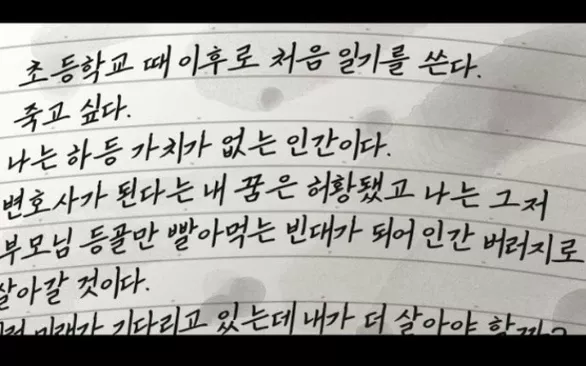 초등학교 때 이후로 처음 일기를 쓴다.
죽고 싶다.
나는 하등 가치가 없는 인간이다.
변호사가 된다는 내 꿈은 허황됐고 나는 그저
부모님 등골만 빨아먹는 빈대가 되어 인간 버러지로
살아갈 것이다.
미래가 기다리고 있는데 내가 더 살아야 할까?